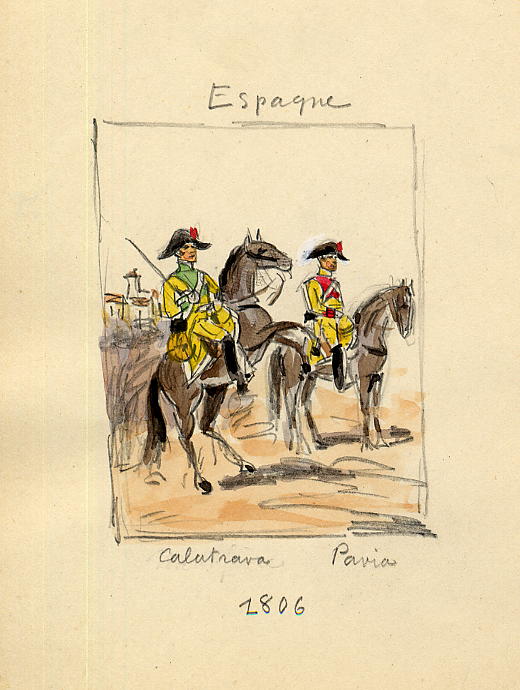 Espagne
Calatrava Pavia
1806